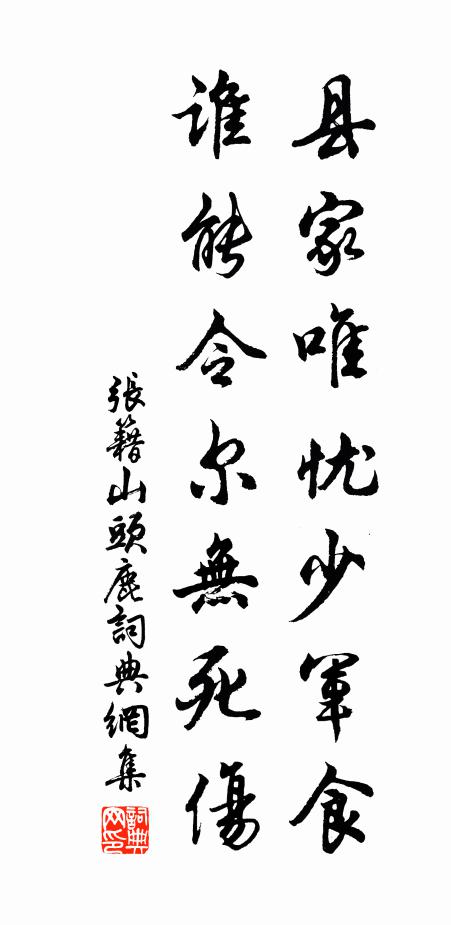 县家唯忧少军食
谁能令尔無死傷
張籍山頭鹿詞典網集
詞典网印